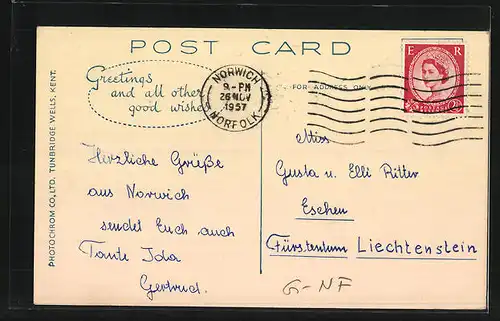 POST CARD
Greetings
and all other
good wishes
NORWICH
9.-PM
26 NOV
1957
NORFOLK
FOR ADDRESS ONLY
E R
PHOTOCHROM CO, LTD, TUNBRIDGE WELLS, KENT.
Herzliche Grüße
aus Norwich
sendet Euch auch
Tante Ida
Gertrud.
Miss
Gusta u. Elli Ritter
Eschen
Fürstentum Liechtenstein
G-NF